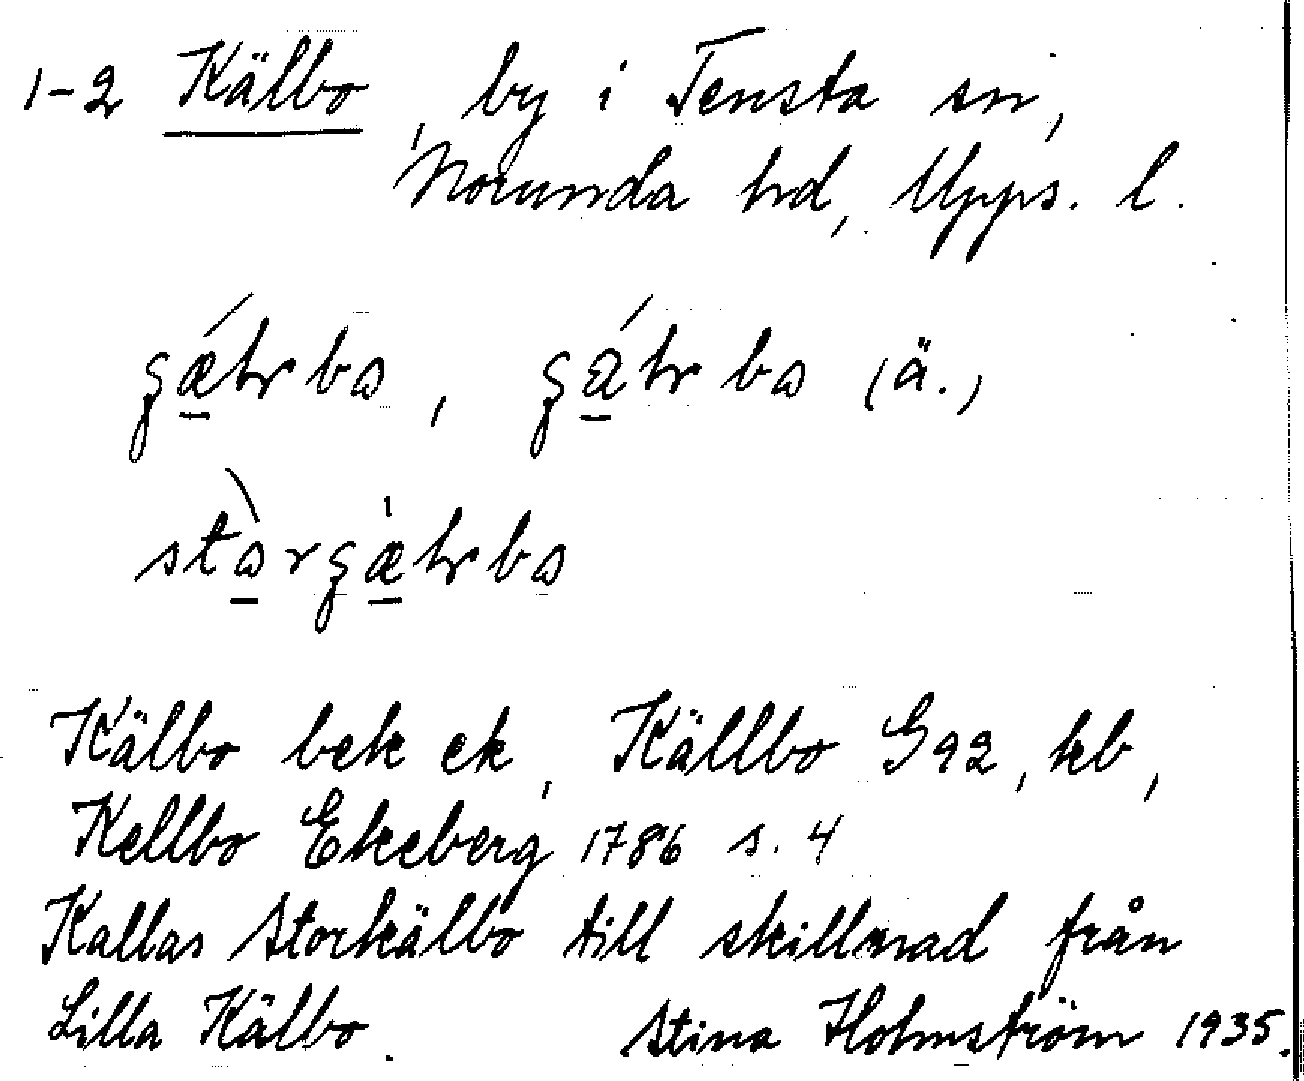 1-2 Kälbo, by i Tensta sn,
Norunda hd, Upps. l.
Kälbo bek ek, Källbo G92, kb,
Kellbo Ekeberg 1786 s. 4
Kallas Storkälbo till skillnad från
Lilla Kälbo. Stina Holmström 1935.